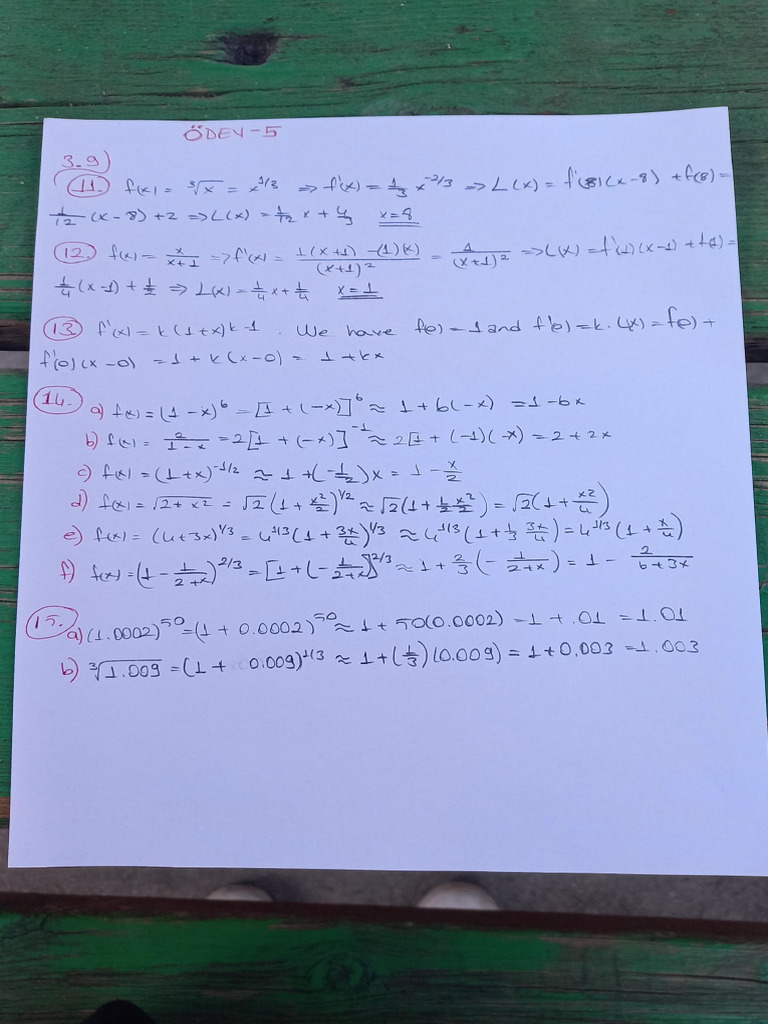 ÖDEV-5
3.9)
11. f(x) = ∛x = x^1/3 ⇒ f'(x) = 1/3 x^-2/3 ⇒ L(x) = f'(8)(x-8) + f(8) =
1/12 (x-8) + 2 ⇒ L(x) = 1/12 x + 4/3 x=8
12. f(x) = x/x+1 ⇒ f'(x) = 1(x+1) - (1)(x)/(x+1)^2 = 1/(x+1)^2 ⇒ L(x) = f'(1)(x-1) + f(1) =
1/4 (x-1) + 1/2 ⇒ L(x) = 1/4 x + 1/4 x=1
13. f'(x) = k(1+x)^k-1. We have f(0) = 1 and f'(0) = k. L(x) = f(0) +
f'(0)(x-0) = 1 + k(x-0) = 1+kx
14. a) f(x) = (1-x)^6 = [1+(-x)]^6 ≈ 1+6(-x) = 1-6x
b) f(x) = 2/1-x = 2[1+(-x)]^-1 ≈ 2[1+(-1)(-x) = 2+2x
c) f(x) = (1+x)^-1/2 ≈ 1+(-1/2)x = 1 - x/2
d) f(x) = √2+x² = √2(1+x²/2)^1/2 ≈ √2(1+1/2 x²/2) = √2(1+x²/4)
e) f(x) = (4+3x)^1/3 = 4^1/3(1+3x/4)^1/3 ≈ 4^1/3(1+1/3 3x/4) = 4^1/3(1+x/4)
f) f(x) = (1 - 1/2+x)^2/3 = [1+(-1/2+x]^2/3 ≈ 1+2/3(-1/2+x) = 1 - 2/6+3x
15. a) (1.0002)^50 = (1+0.0002)^50 ≈ 1+50(0.0002) = 1+.01 = 1.01
b) ∛1.009 = (1+0.009)^1/3 ≈ 1+(1/3)(0.009) = 1+0.003 = 1.003